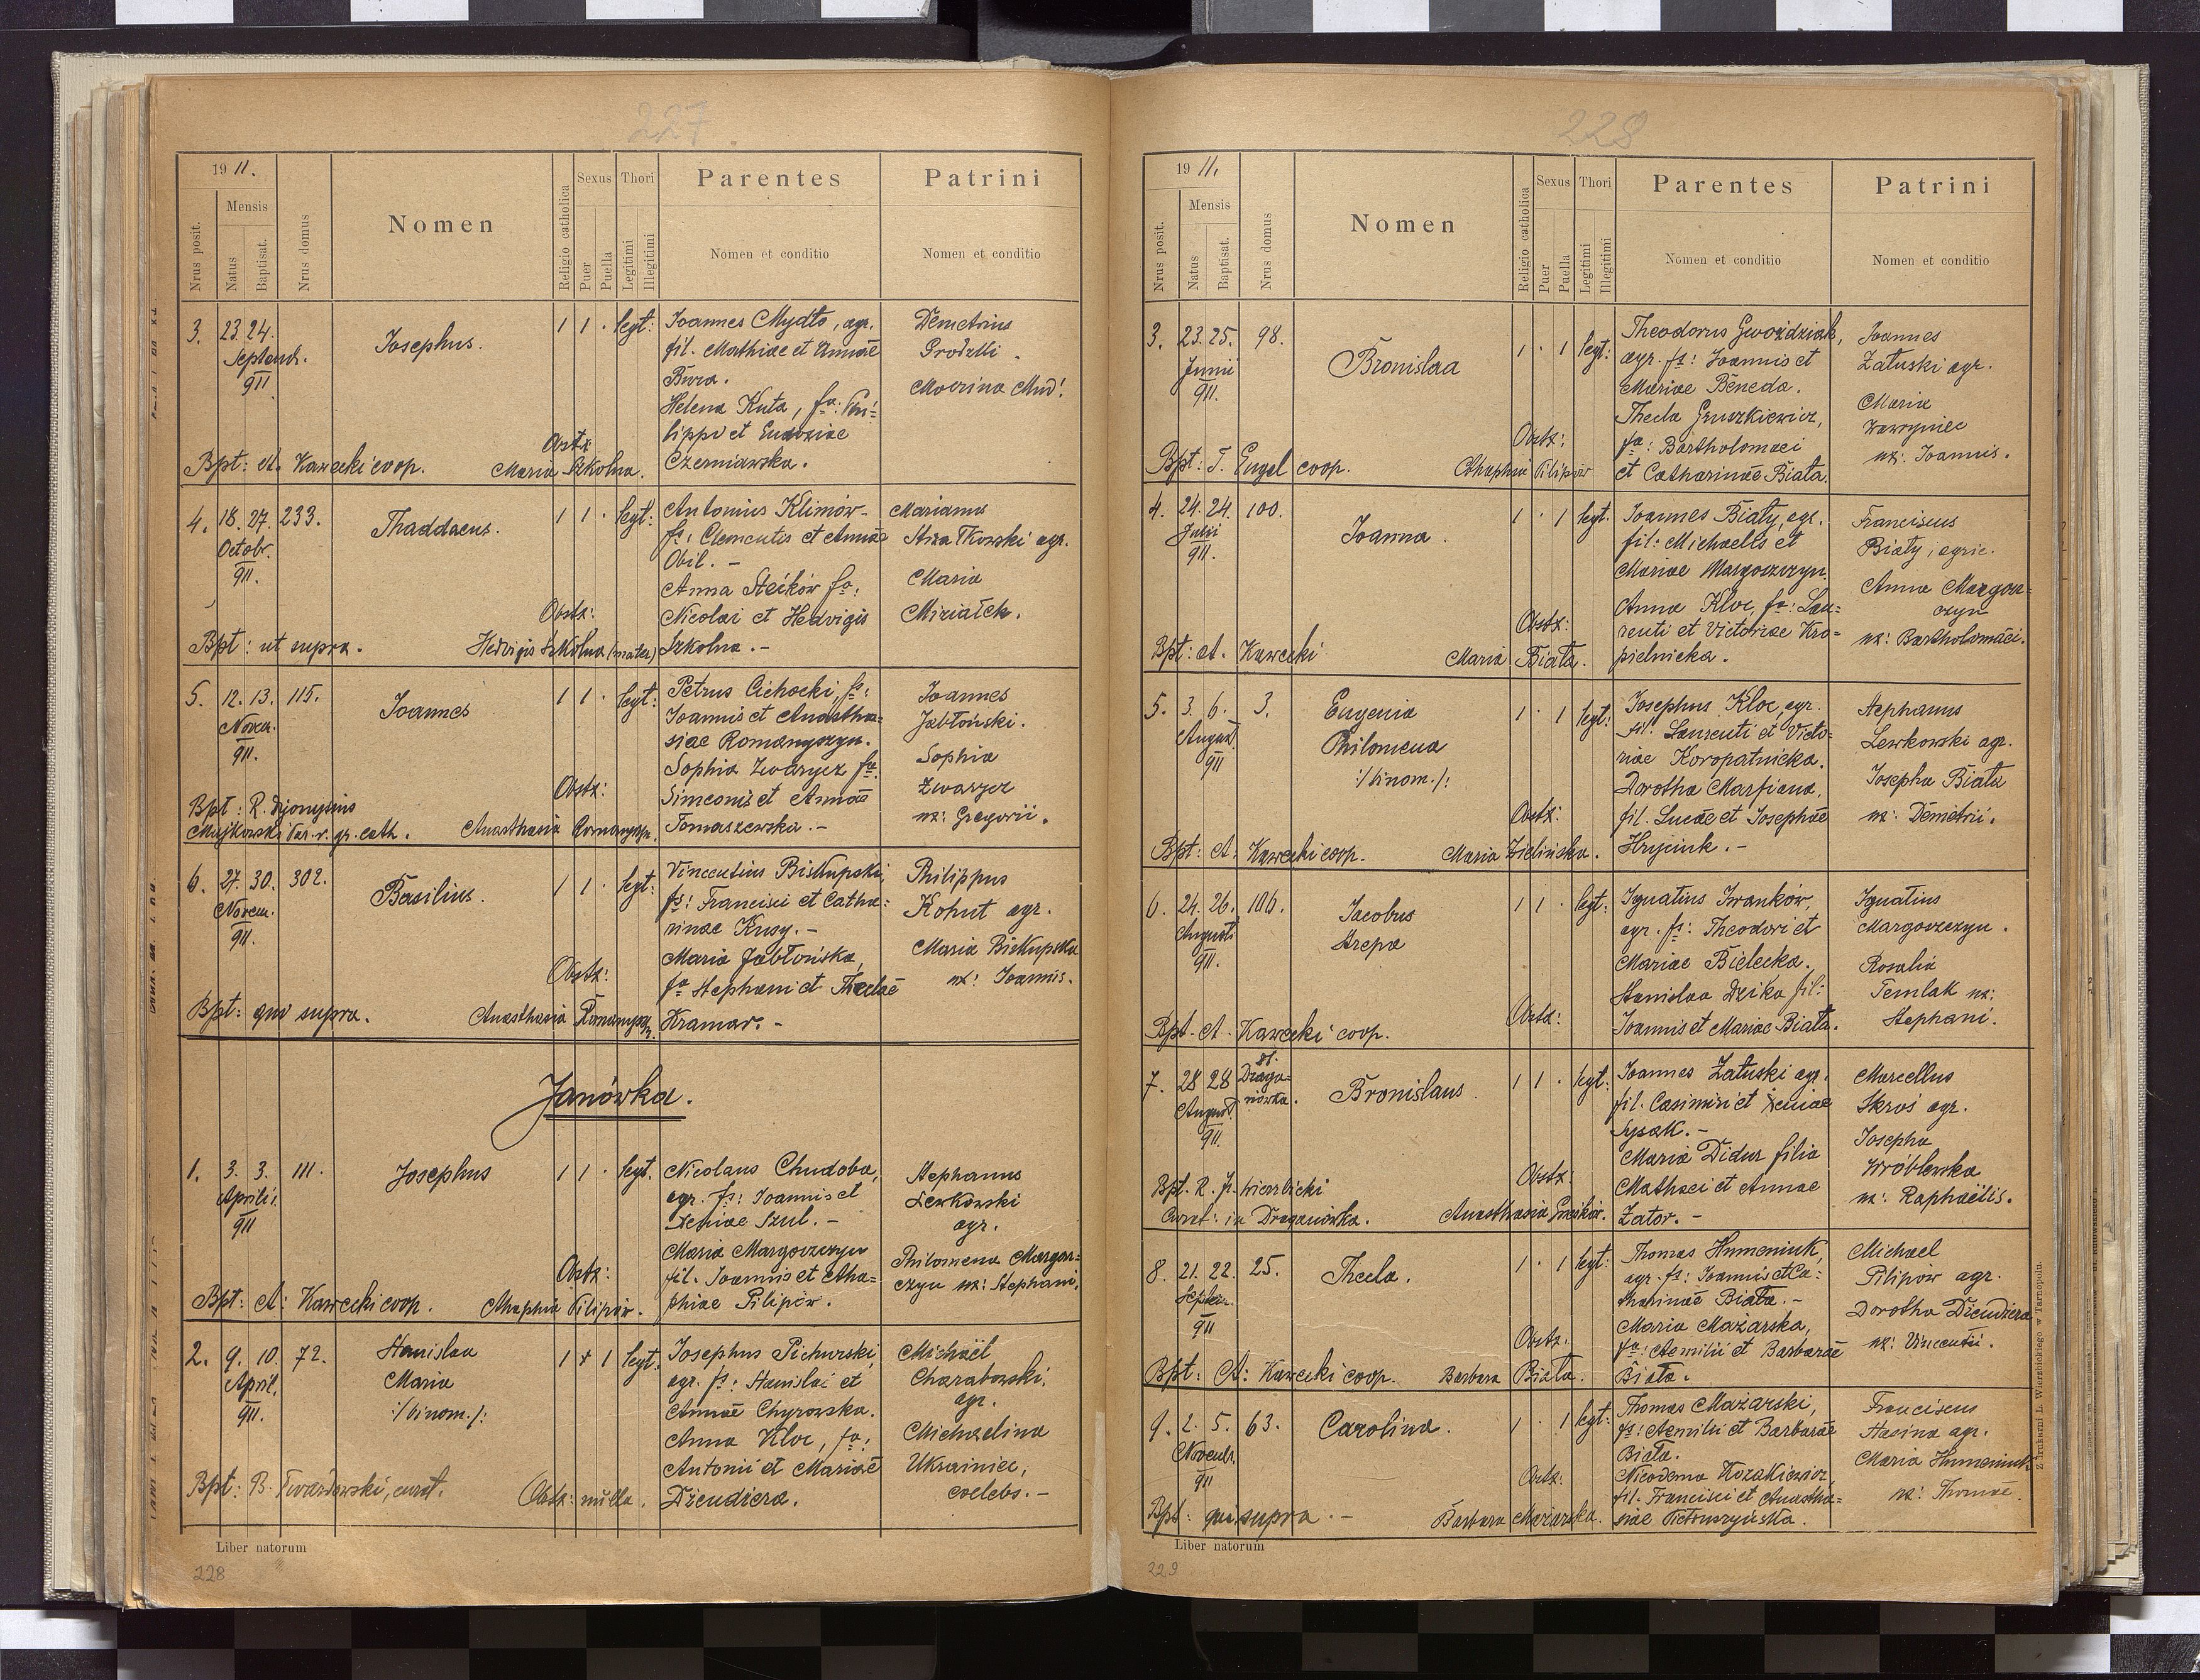 227
19 11.
Nrus posit.
Mensis
Natus
Baptisat.
Nrus domus
Nomen
Religio catholica
Sexus
Puer
Puella
Thori
Legitimi
Illegitimi
Parentes
Nomen et conditio
Patrini
Nomen et conditio
3.
23. 24.
Septemb.
911
Josephus.
1 1 . legt:
Joannes Mydło, agr.
fil. Mathiae et Annae
Bura.
Helena Kuta, fa: Phi-
lippi et Eudoxiae
Czerniawska.
Demetrius
Marina
Obstx:
Maria Szkolna.
Bpt: A. Kawecki coop.
4.
18. 27.
Octobr.
911.
233.
Thaddaeus.
1 1 . legt:
Antonius Klimów
fs: Clementis et Annae
Obil. -
Anna Steików fa:
Nicolai et Hedvigis
Szkolna. -
Marianus
agr.
Maria
Misiałek.
Obstx:
Hedvigis Szkolna (mater)
Bpt: ut supra.
5.
12. 13.
Novem.
911.
115.
Joannes
1 1 . legt:
Petrus Cichocki, fs:
Joannis et Anastha-
siae Romanyszyn.
Sophia Zwarycz fa.
Simeonis et Annae
Tomaszewska. -
Joannes
Jabłoński.
Sophia
Zwarycz
ux: Gregorii.
Obstx:
Anasthasia Romanyszyn.
Bpt: R. Dyonysius
Majkowski Par. r. gr. cath.
6.
27. 30.
Novem.
911.
302.
Basilius.
1 1 . legt:
Vincentius Biskupski,
fs: Francisci et Catha-
rinae Kusy. -
Maria Jabłońska,
fa Stephani et Theclae
Kramar. -
Philippus
Kohut agr.
Maria Biskupska
ux: Joannis.
Obstx:
Anasthasia Romanyszyn.
Bpt: qui supra.
Janówka.
1.
3. 3.
Aprili.
911
111.
Josephus
1 1 . legt.
Nicolaus Chudoba,
agr. fs: Joannis et
Xeniae Szul. -
Maria Margoszczyn
fil. Joannis et Aha-
phiae Pilipów.
Stephanus
Lewkowski
agr.
Philomena Margosz-
czyn ux: Stephani.
Obstx:
Ahaphia Pilipów.
Bpt: A: Kawecki coop.
2.
9. 10.
April.
911.
72.
Stanislaa
Maria
:/binom./:
1 + 1 legt.
Josephus Pichurski,
agr. fs: Stanislai et
Annae Chyrowska.
Anna Kloc, fa:
Antonii et Mariae
Dziendziera.
Michaël
Charabowski,
agr.
Michaelina
Ukrainiec,
coelebs. -
Bpt: B. Twardowski, curat.
Obstx: nulla.
Liber natorum
228
228
19 11.
Nrus posit.
Mensis
Natus
Baptisat.
Nrus domus
Nomen
Religio catholica
Sexus
Puer
Puella
Thori
Legitimi
Illegitimi
Parentes
Nomen et conditio
Patrini
Nomen et conditio
3.
23. 25.
Junii
911.
98.
Bronislaa
1 . 1 legt:
Theodorus Gwoździak,
agr. fs: Joannis et
Mariae Beneda.
Thecla Gruszkiewicz,
fa: Bartholomaei
et Catharinae Biała.
Joannes
Załuski agr.
Maria
Wawryniec
ux: Joannis.
Obstx:
Ahaphia Pilipów
Bpt: T. Engel coop.
4.
24. 24.
Julii
911.
100.
Joanna.
1 . 1 legt.
Joannes Biały, agr.
fil: Michaelis et
Mariae Margoszczyn.
Anna Kloc, fa: Lau-
renti et Victoriae Kro-
pielnicka.
Franciscus
Biały, agric.
Anna Margosz-
czyn
ux: Bartholomaei.
Obstx:
Maria Biała.
Bpt: A. Kawecki
5.
3. 6.
August.
911
3.
Eugenia
Philomena
:/binom./:
1 . 1 legt:
Josephus Kloc, agr.
fil. Laurenti et Victo-
riae Koropatnicka.
Dorothea Marfiana,
fil. Lucae et Josephae
Hryciuk. -
Stephanus
Lewkowski agr.
Josepha Biała
ux: Demetrii.
Obstx:
Maria Zielińska.
Bpt: A. Kawecki coop.
6.
24. 26.
Augusti
911.
106.
Jacobus
Arepa
1 1 . legt:
Ignatius Iwanków,
agr. fs: Theodori et
Mariae Bielecka.
Stanislaa Dzika fil:
Joannis et Mariae Biała.
Ignatius
Margoszczyn.
Rosalia
Temlak ux:
Stephani.
Obstx:
Bpt. A. Kawecki coop.
7.
28 28
August.
911.
Draga-
nówka.
Bronislaus.
1 1 . legt:
Joannes Załuski agr.
fil. Casimiri et Xeniae
Sysak. -
Maria Didur filia
Mathaei et Annae
Zator. -
Marcellus
Skroś agr.
Josepha
Wróblewska
ux: Raphaëlis.
Obstx:
Bpt. R. J. Wierzbicki
Curat: in Draganówka.
8.
21. 22.
Septem.
911
25.
Thecla.
1 . 1 legt:
Thomas Humeniuk,
agr. fs: Joannis et Ca-
tharinae Biała. -
Maria Mazarska,
fa: Aemilii et Barbarae
Biała.
Michael
Pilipów agr.
Dorothea Dziendziera
ux: Vincentii.
Obstx.
Barbara Biała.
Bpt: A: Kawecki coop.
9.
2. 5.
Novemb.
911
63.
Carolina.
1 . 1 legt:
Thomas Mazarski,
fs: Aemilii et Barbarae
Biała.
Nicodema Kozakiewicz,
fil. Francisci et Anastha-
siae Pietruszyńska.
Franciscus
Hasina agr.
Maria Humeniuk
ux: Thomae.
Obstx:
Barbara Mazarska.
Bpt: qui supra. -
Liber natorum
229
Z drukarni L. Wierzbickiego w Tarnopolu.